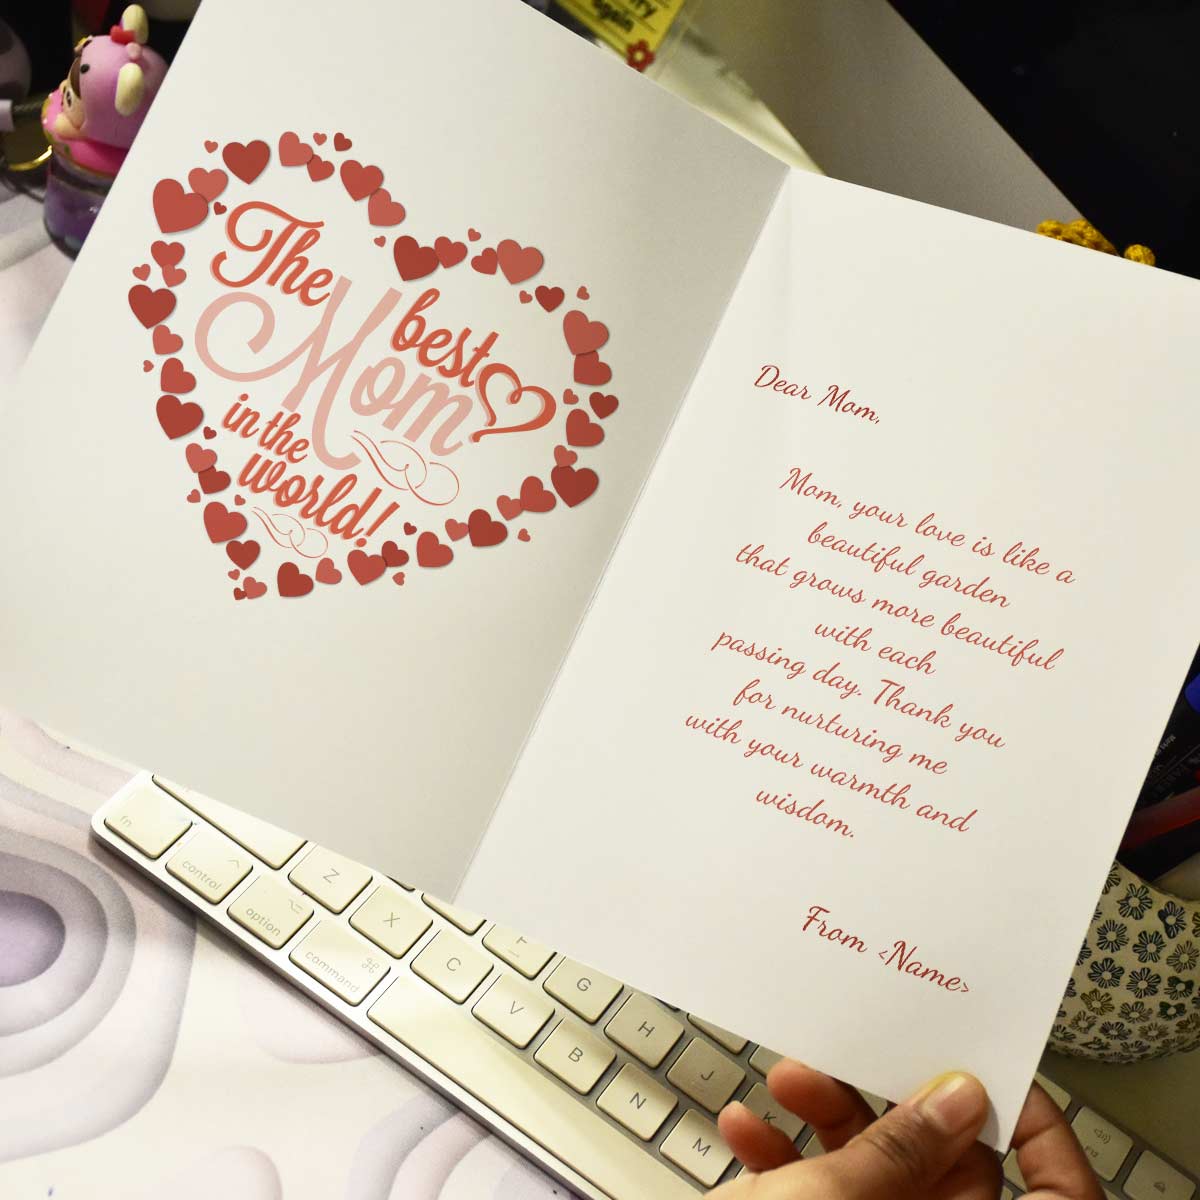 The best
Mom
in the
world!
Dear Mom,
Mom, your love is like a
beautiful garden
that grows more beautiful
with each
passing day. Thank you
for nurturing me
with your warmth and
wisdom.
From <Name>
again
fn
control
option
command
Z
X
C
V
B
N
M
F
G
H
J
K
F12